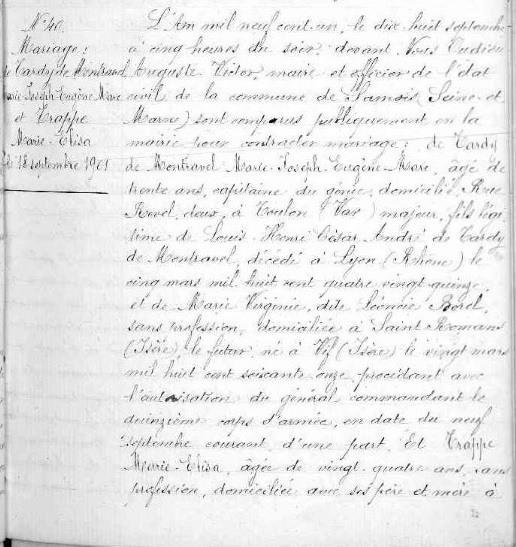 N° 40.
Mariage:
de Tardy de Montravel
Marie Joseph Eugène Marc
et Trappe
Marie-Elisa
le 18 septembre 1901
L'An mil neuf cent un, le dix huit septembre
à cinq heures du soir, devant Nous
Auguste Victor, maire et officier de l'état
civil de la commune de Samois (Seine-et-
Marne) sont comparus publiquement en la
mairie pour contracter mariage: de Tardy
de Montravel Marie-Joseph-Eugène-Marc, âgé de
trente ans, capitaine du génie, domicilié Rue
Revel, deux, à Toulon (Var) majeur, fils légi-
time de Louis Henri César André de Tardy
de Montravel, décédé à Lyon (Rhône) le
cinq mars mil huit cent quatre vingt quinze,
et de Marie Virginie, dite Léoncie Borel,
sans profession, domiciliée à Saint Romans
(Isère), le futur né à Vif (Isère) le vingt mars
mil huit cent soixante onze procédant avec
l'autorisation du général commandant le
quinzième corps d'armée, en date du neuf
septembre courant, d'une part. Et Trappe
Marie-Elisa, âgée de vingt-quatre ans, sans
profession, domiciliée avec ses père et mère à